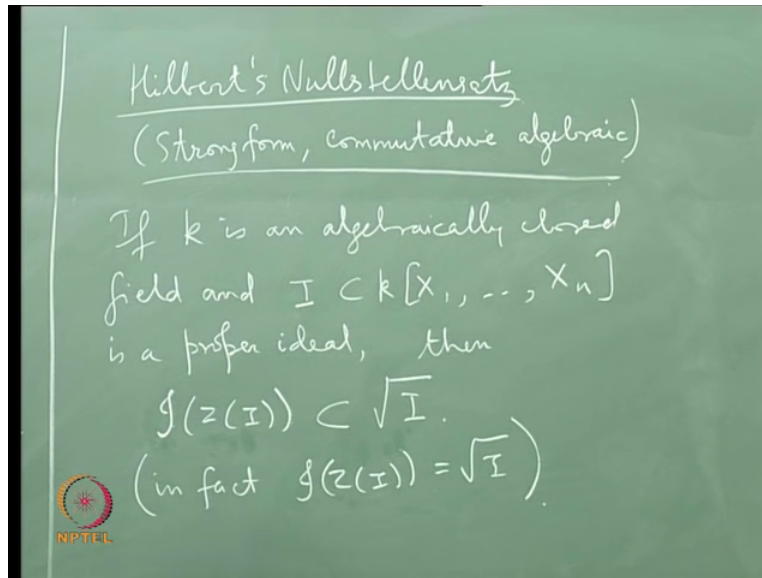 Hilbert's Nullstellensatz
(Strong form, commutative algebraic)
If k is an algebraically closed
field and I ⊂ k[X₁, --, Xₙ]
is a proper ideal, then
𝓘(Z(I)) ⊂ √I.
(in fact 𝓘(Z(I)) = √I).
NPTEL